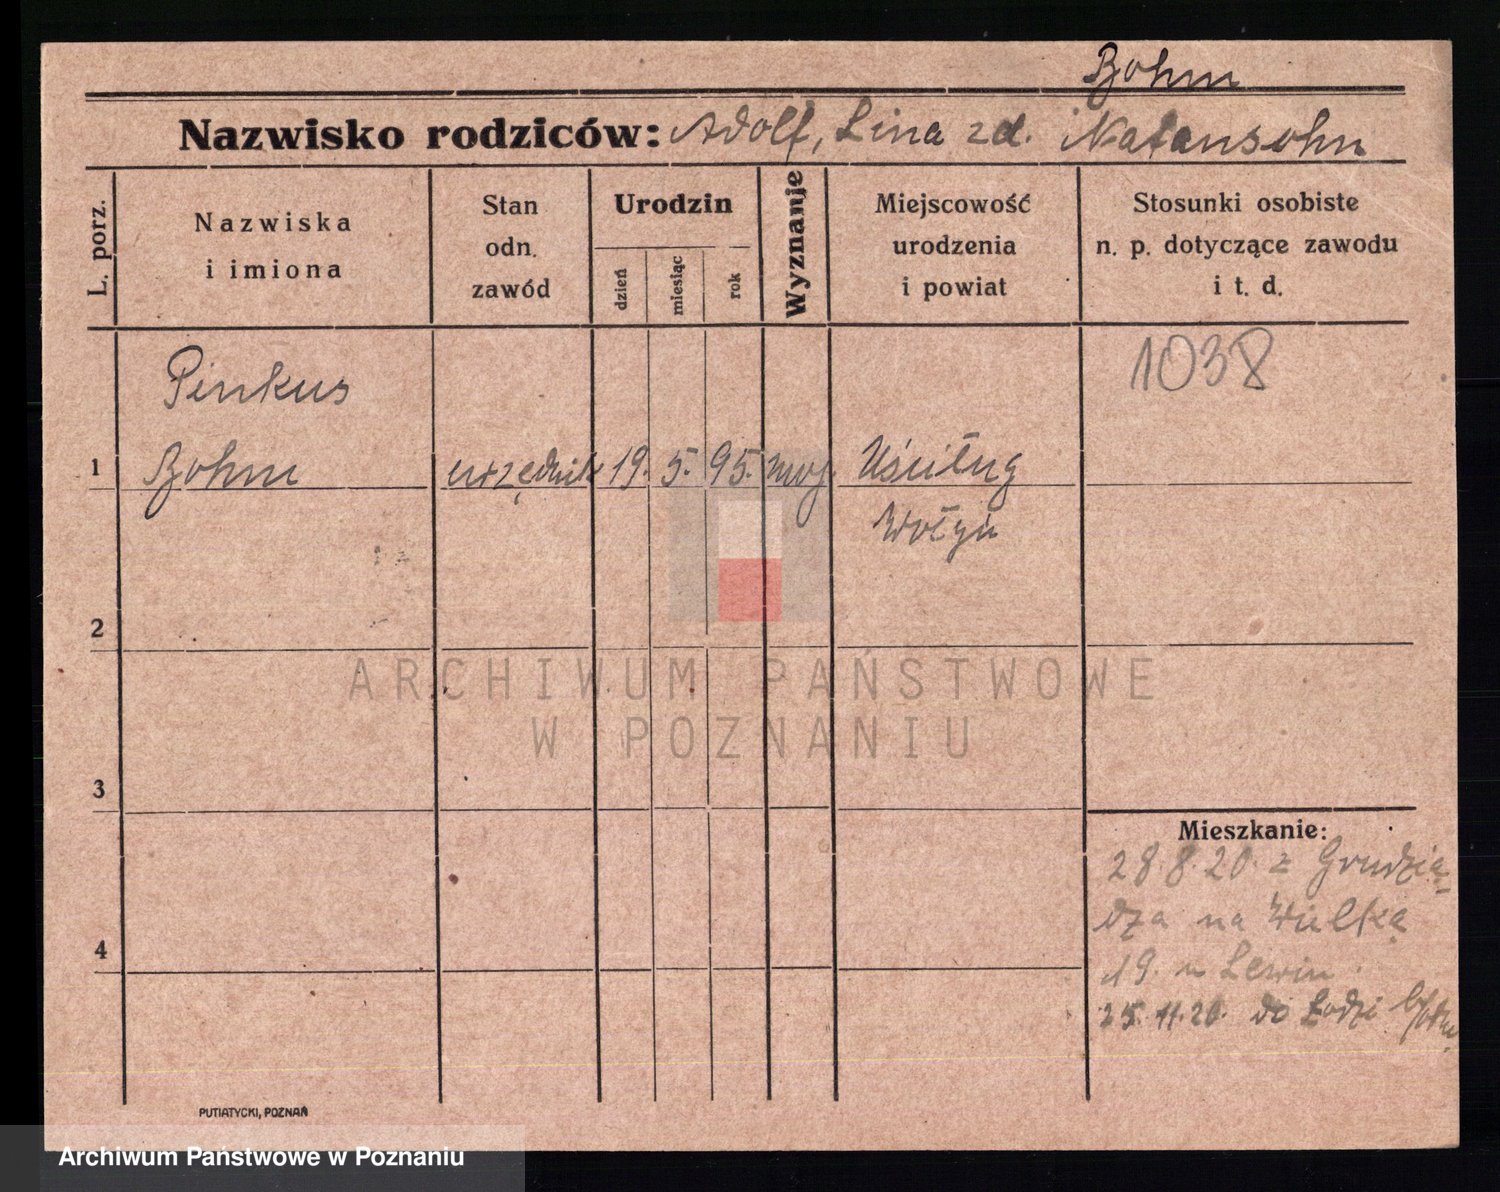 Bohm
Nazwisko rodziców: Adolf, Lina zd. Natansohn
L. porz.
Nazwiska
i imiona
Stan
odn.
zawód
Urodzin
dzień
miesiąc
rok
Wyznanie
Miejscowość
urodzenia
i powiat
Stosunki osobiste
n. p. dotyczące zawodu
i t. d.
1038
Pinkus
1 Bohm urzędnik 19. 5. 95. moj. Uściług
Wołyń
2
3
4
Mieszkanie:
28.8.20. z Grudzią-
dza na Wielką
19. u Lewin
25.11.20. do Łodzi
PUTIATYCKI, POZNAŃ
ARCHIWUM PAŃSTWOWE
W POZNANIU
Archiwum Państwowe w Poznaniu